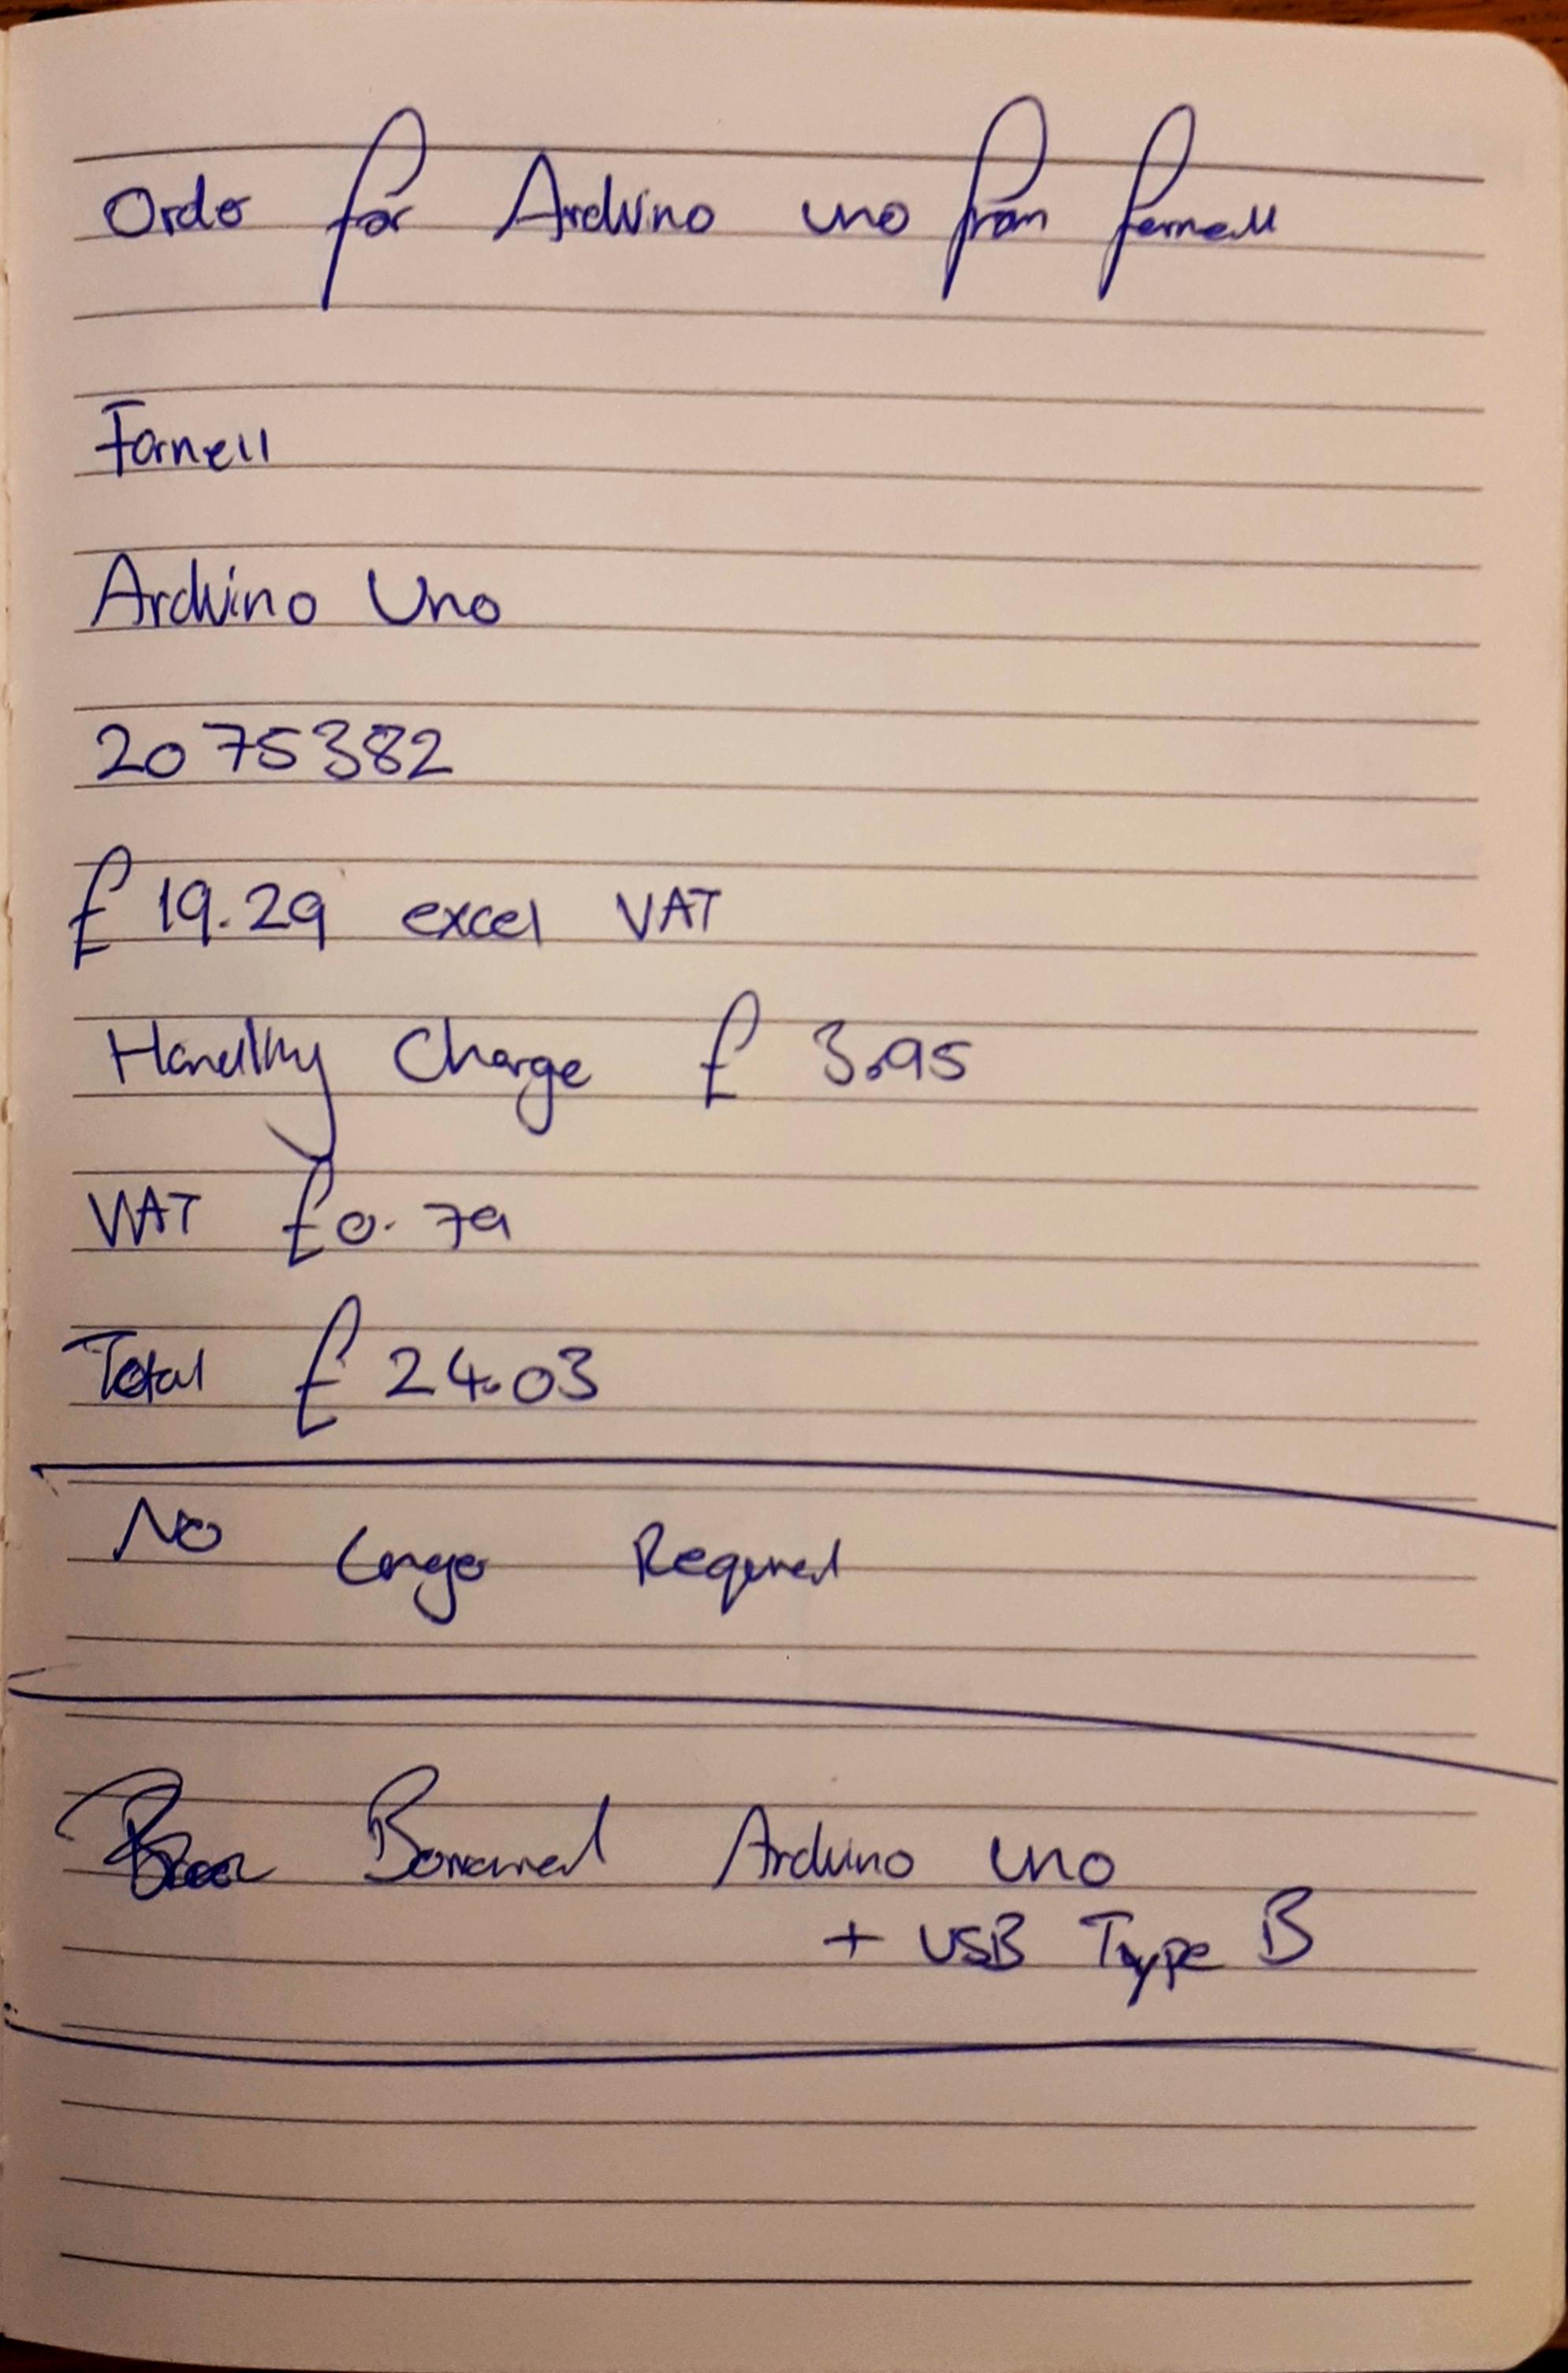 Order for Arduino uno from farnell
Farnell
Arduino Uno
2075382
£19.29 excel VAT
Handling Charge £3.95
VAT £0.79
Total £24.03
No Longer Required
Borrowed Arduino uno
+ USB Type B